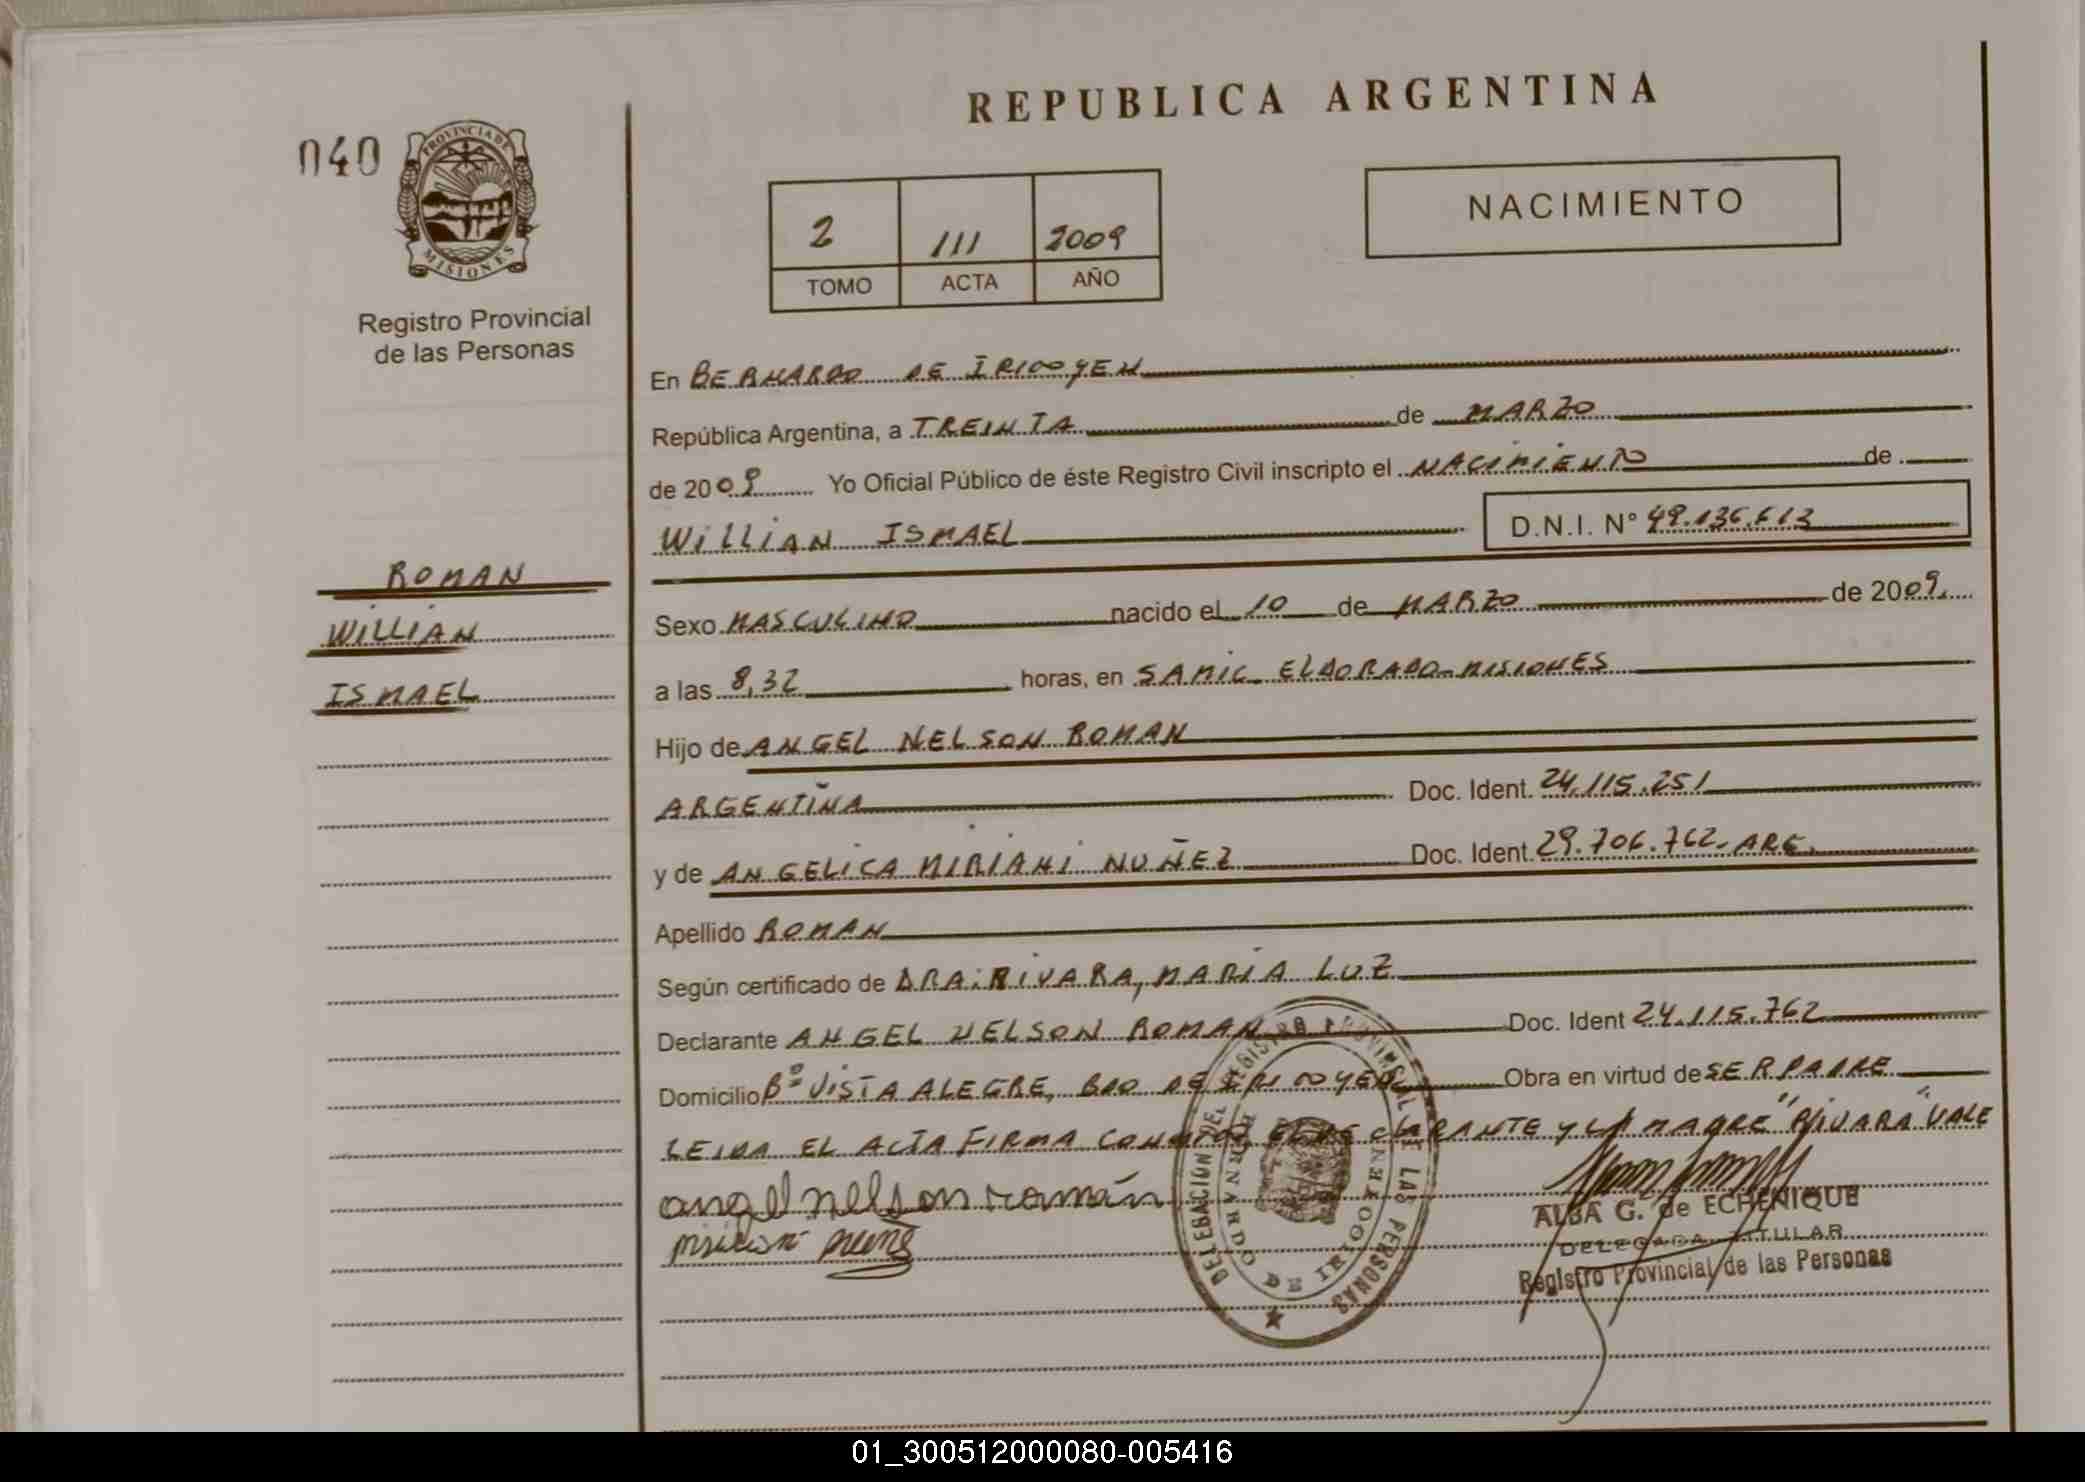 REPUBLICA ARGENTINA
040
PROVINCIA DE
MISIONES
Registro Provincial
de las Personas
2 111 2009
TOMO ACTA AÑO
NACIMIENTO
En BERNARDO DE IRIGOYEN
República Argentina, a TREINTA de MARZO
de 2009 Yo Oficial Público de éste Registro Civil inscripto el NACIMIENTO de
WILLIAN ISMAEL D.N.I. N° 49.136.613
ROMAN
WILLIAN
ISMAEL
Sexo MASCULINO nacido el 10 de MARZO de 2009.
a las 8,32 horas, en SAMIC ELDORADO-MISIONES
Hijo de ANGEL NELSON ROMAN
ARGENTINA Doc. Ident. 24.115.251
y de ANGELICA MIRIANI NUÑEZ Doc. Ident. 29.706.762-ARG.
Apellido ROMAN
Según certificado de DRA: RIVARA, MARIA LUZ
Declarante ANGEL NELSON ROMAN Doc. Ident 24.115.762
Domicilio Bº VISTA ALEGRE, BDO DE IRIGOYEN Obra en virtud de SER PADRE
LEIDA EL ACTA FIRMA CONMIGO EL DECLARANTE Y LA MADRE "RIVARA" VALE
angel nelson román
DELEGACION DEL REGISTRO PROVINCIAL DE LAS PERSONAS
BERNARDO DE IRIGOYEN
ALBA G. de ECHENIQUE
DELEGADA TITULAR
Registro Provincial de las Personas
01_300512000080-005416